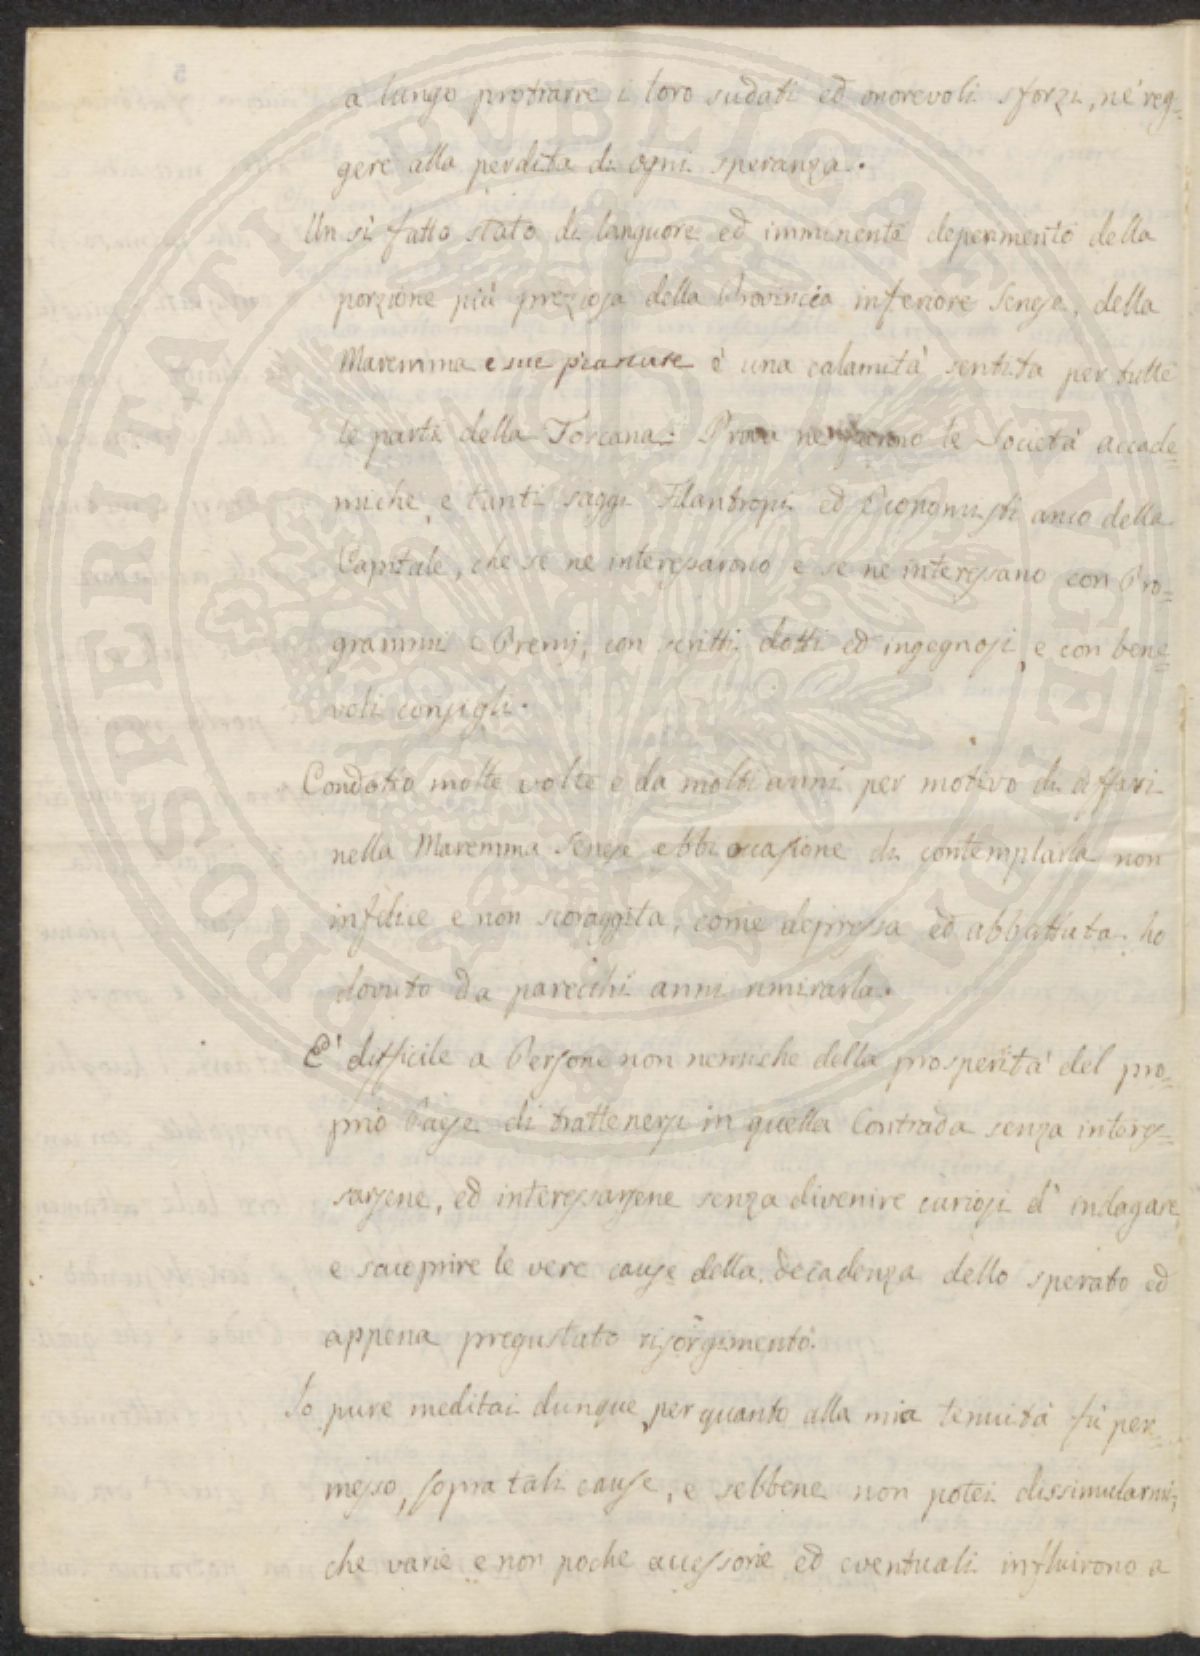 a lungo protrarre i loro sudati ed onorevoli sforzi, nè reg=
gere alla perdita di ogni speranza.
Un sì fatto stato di languore ed imminente deperimento della
porzione più preziosa della Provincia inferiore Senese, della
Maremma e sue pianure è una calamità sentita per tutte
le parti della Toscana: Prova ne fecero le Società accade=
miche, e tanti saggi Filantropi ed Economisti anco della
Capitale, che se ne interessarono e se ne interessano con Pro=
grammi e Premj, con scritti dotti ed ingegnosi, e con bene=
voli consigli.
Condotto molte volte e da molti anni per motivo di Affari
nella Maremma Senese ebbi occasione di contemplarla non
infelice e non scoraggita, come depressa ed abbattuta ho
dovuto da parecchi anni rimirarla.
E' difficile a Persone non nemiche della prosperità del pro=
prio Paese di trattenersi in quella Contrada senza interes=
sarsene, ed interessarsene senza divenire curiosi d' indagare
e scuoprire le vere cause della decadenza dello sperato ed
appena pregustato risorgimento.
Io pure meditai dunque, per quanto alla mia tenuità fù per=
messo, sopra tali cause, e sebbene non potei dissimularmi,
che varie e non poche accessorie ed eventuali influirono a
PROSPERITATI PUBLICAE AVGENDAE